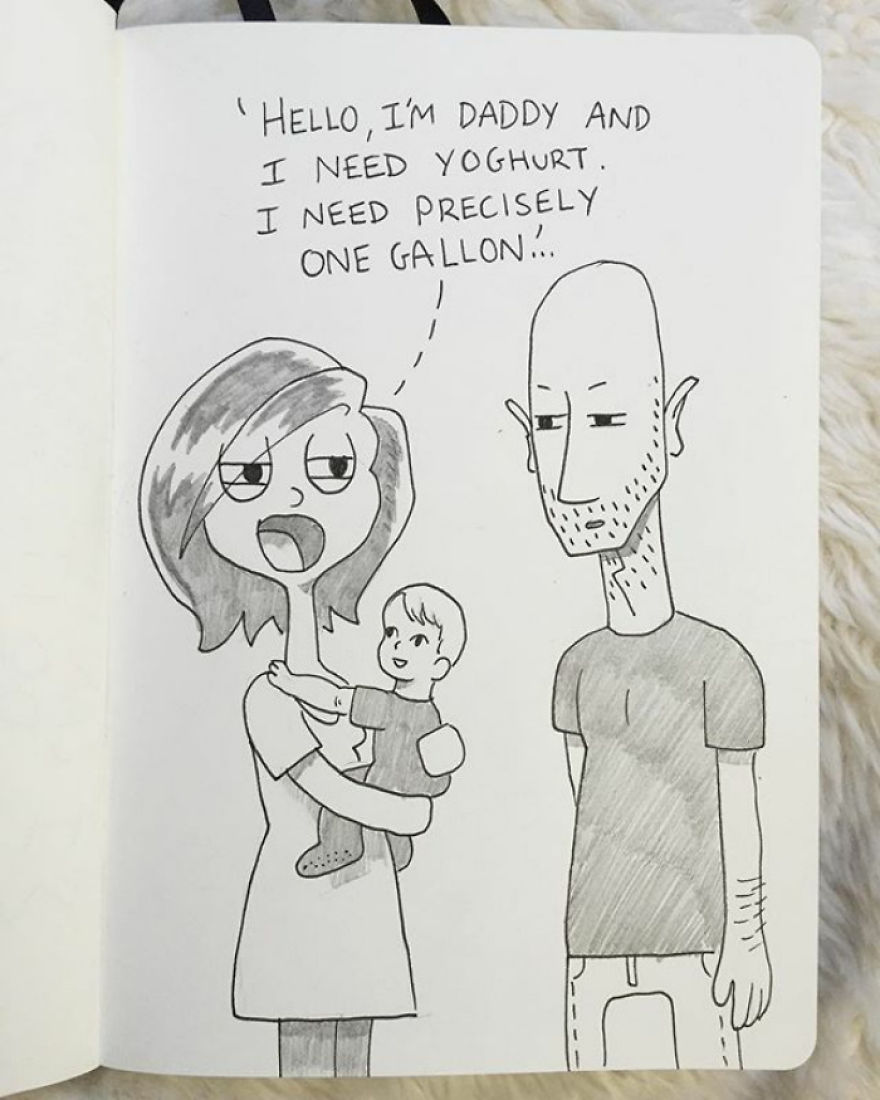 'HELLO, I'M DADDY AND
I NEED YOGHURT.
I NEED PRECISELY
ONE GALLON'...